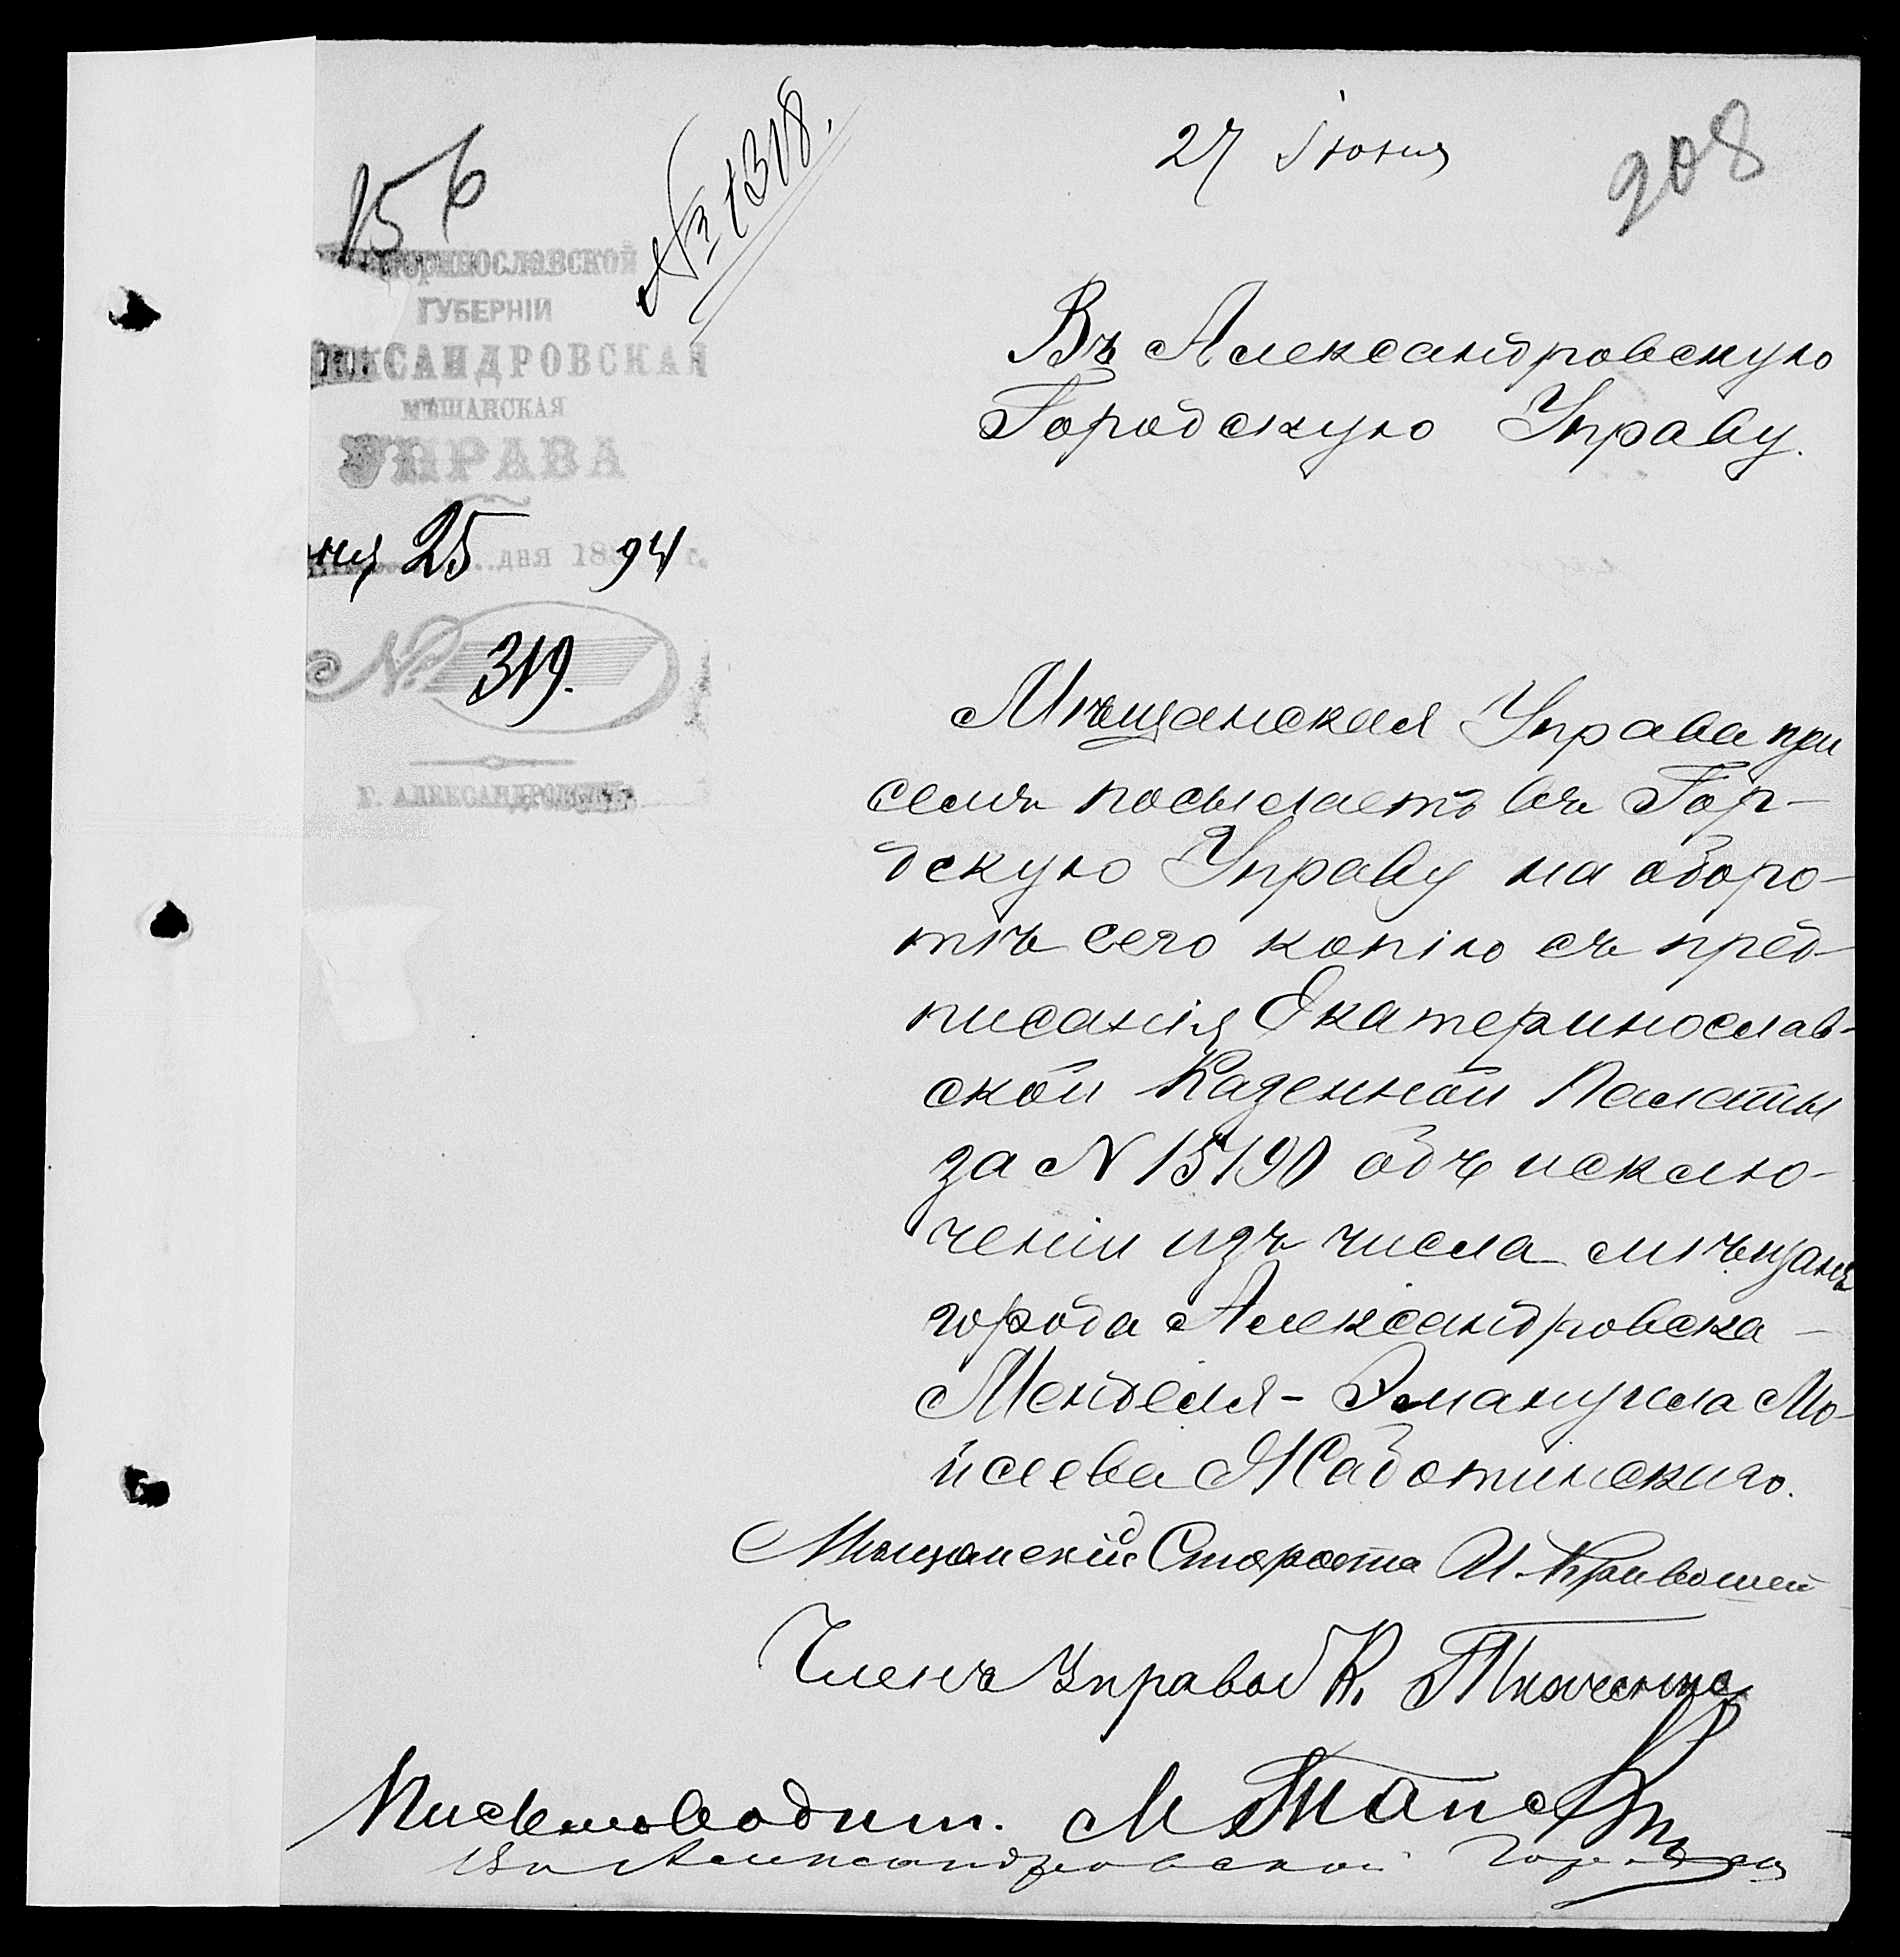 156
№ 1318.
27 Іюня
208
Екатеринославской
ГУБЕРНІИ
АЛЕКСАНДРОВСКАЯ
МѢЩАНСКАЯ
УПРАВА
25 дня 1894 г.
№ 319.
Г. АЛЕКСАНДРОВСКЪ
Въ Александровскую
Городскую Управу.
Мѣщанская Управа при
семъ посылаетъ въ Гор-
дскую Управу на оборо-
тѣ сего копію съ пред-
писанія Екатеринослав-
ской Казенной Палаты
за N 15190 объ исклю-
ченіи изъ числа мѣщанъ
города Александровска -
Менделя - Эмануила Мо-
исеева Жаботинскаго.
Мѣщанскій Староста И. Кривошей
Членъ Управы К. Ткаченко
Письмоводит. М
Въ Александровской